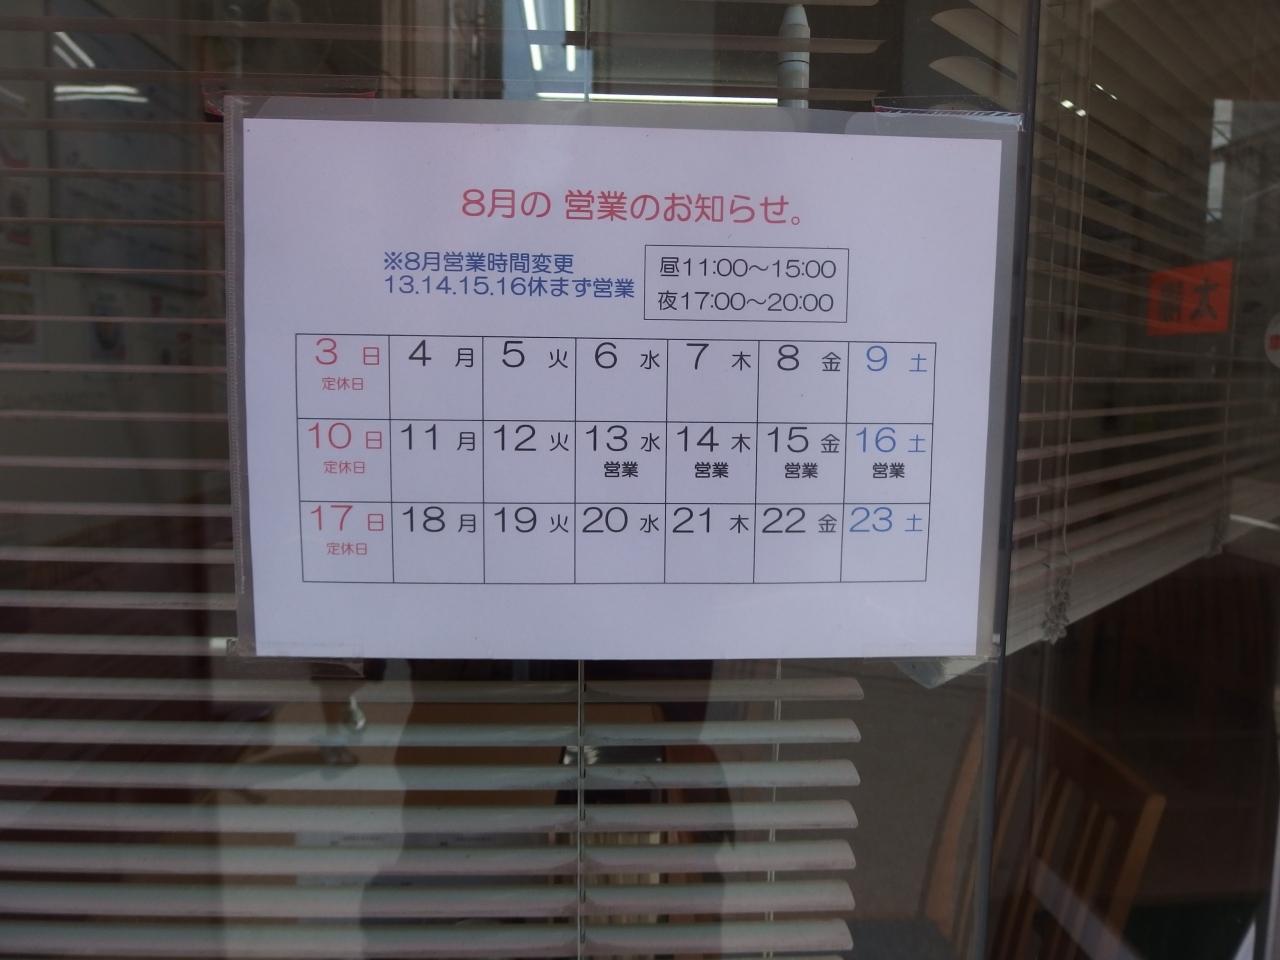 8月の 営業のお知らせ。
※8月営業時間変更
13.14.15.16休まず営業
昼11:00～15:00
夜17:00～20:00
3 日 4 月 5 火 6 水 7 木 8 金 9 土
定休日
10 日 11 月 12 火 13 水 14 木 15 金 16 土
定休日 営業 営業 営業 営業
17 日 18 月 19 火 20 水 21 木 22 金 23 土
定休日